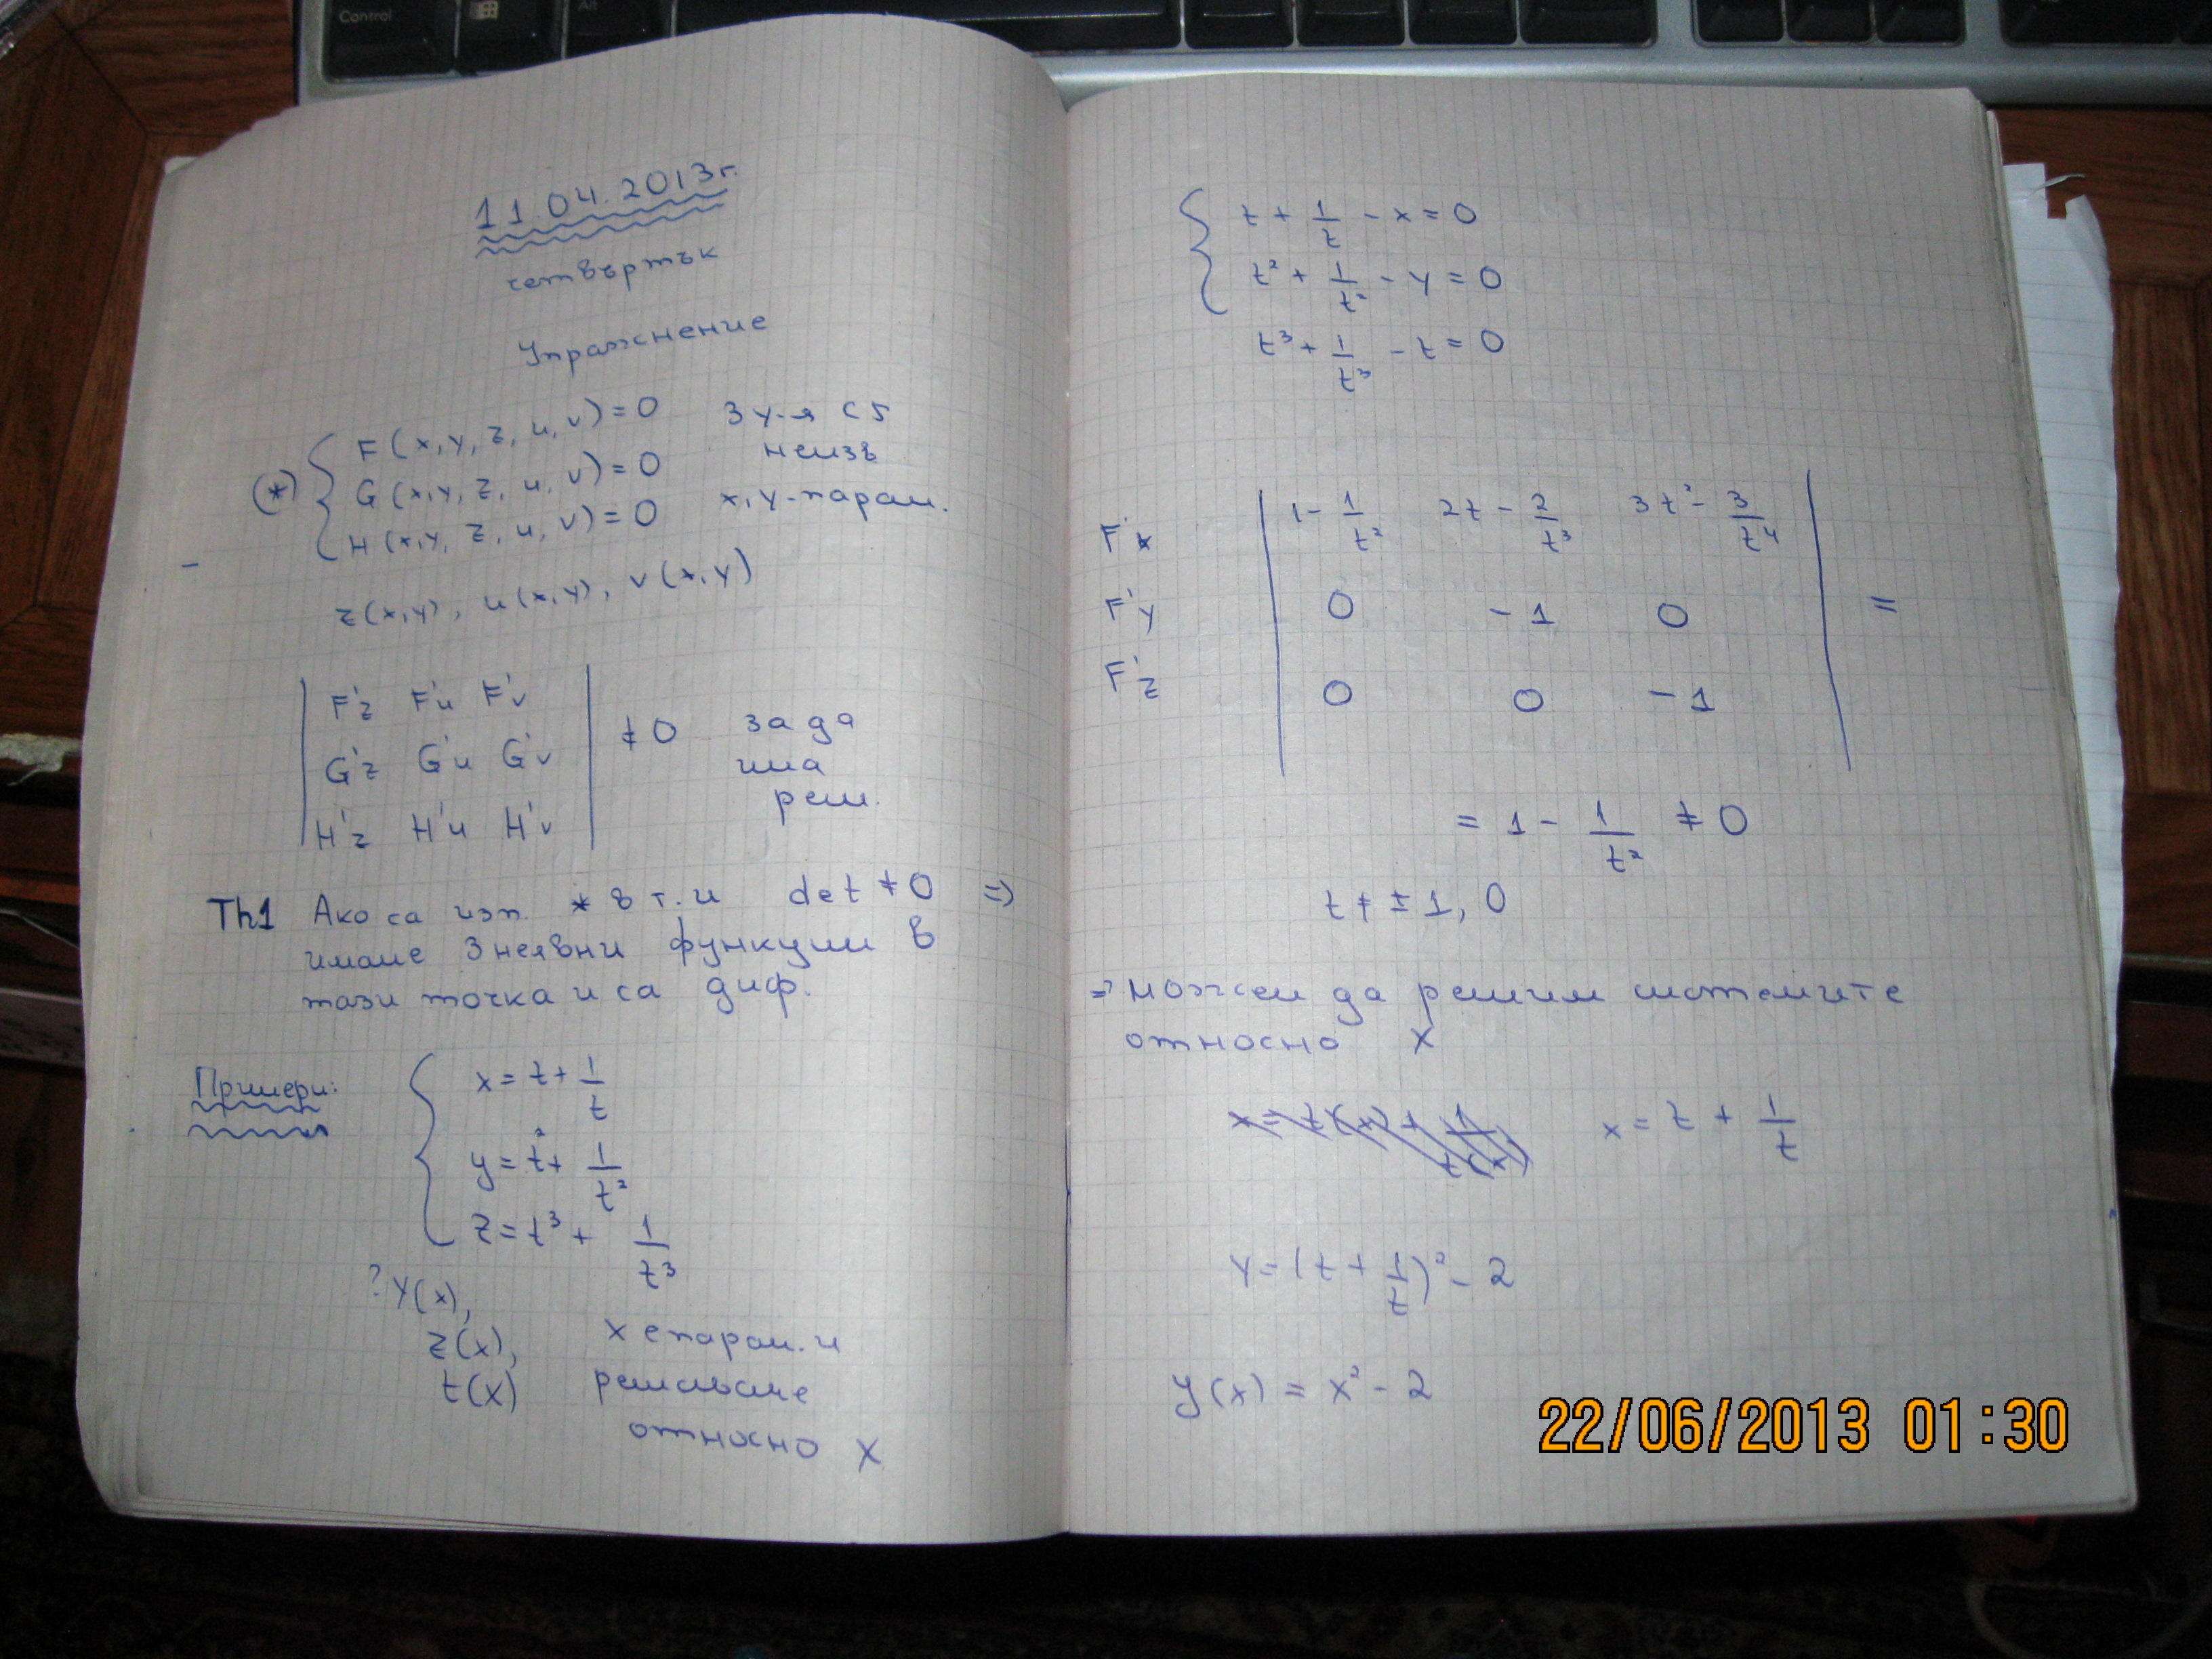 11.04.2013г.
четвъртък
Упражнение
(*) { F(x,y,z,u,v)=0 3 у-я с 5
G(x,y,z,u,v)=0 неизв
H(x,y,z,u,v)=0 x,y-парам.
z(x,y), u(x,y), v(x,y)
| F'z F'u F'v |
| G'z G'u G'v | ≠0 за да
има
| H'z H'u H'v | реш.
Th1 Ако са изп. * в т. M det≠0 =>
имаме 3 неявни функции в
тази точка и са диф.
Примери: { x = t + 1/t
y = t² + 1/t²
z = t³ + 1/t³
? y(x),
z(x), x е парам. и
t(x) решаваме
относно x
{ t + 1/t - x = 0
t² + 1/t² - y = 0
t³ + 1/t³ - t = 0
F'x | 1 - 1/t² 2t - 2/t³ 3t² - 3/t⁴ |
F'y | 0 -1 0 | =
F'z | 0 0 -1 |
= 1 - 1/t² ≠ 0
t ≠ ±1, 0
=> можем да решим системите
относно x
x = t(x) + 1/t(x) x = t + 1/t
y = (t + 1/t)² - 2
y(x) = x² - 2
22/06/2013 01:30
Control
Alt